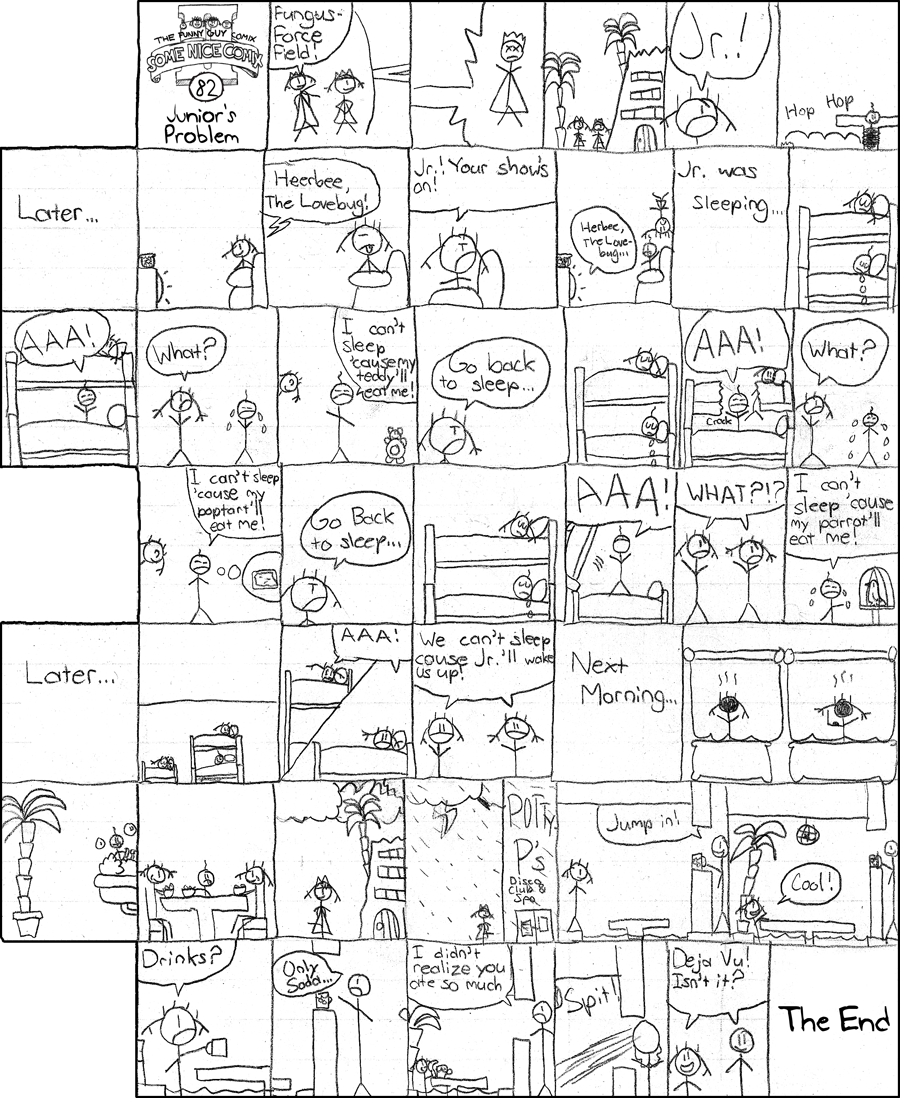 THE FUNNY GUY COMIX
SOME NICE COMIX
82
Junior's
Problem
Fungus-
Force
Field!
Jr.!
Hop Hop
Later...
Heerbee,
The Lovebug!
Jr.! Your show's
on!
Herbee,
The Love-
bug...
Jr. was
sleeping...
AAA!
What?
I can't
sleep
'cause my
teddy'll
eat me!
Go back
to sleep...
AAA!
Crack
What?
I can't sleep
'cause my
poptart'll
eat me!
Go Back
to sleep...
AAA!
WHAT?!?
I can't
sleep 'cause
my parrot'll
eat me!
Later...
AAA!
We can't sleep
cause Jr.'ll wake
us up!
Next
Morning...
POTTY
P's
Disco
Club &
Spa
Jump in!
Cool!
Drinks?
Only
Soda...
I didn't
realize you
ate so much
Spit!
Deja Vu!
Isn't it?
The End